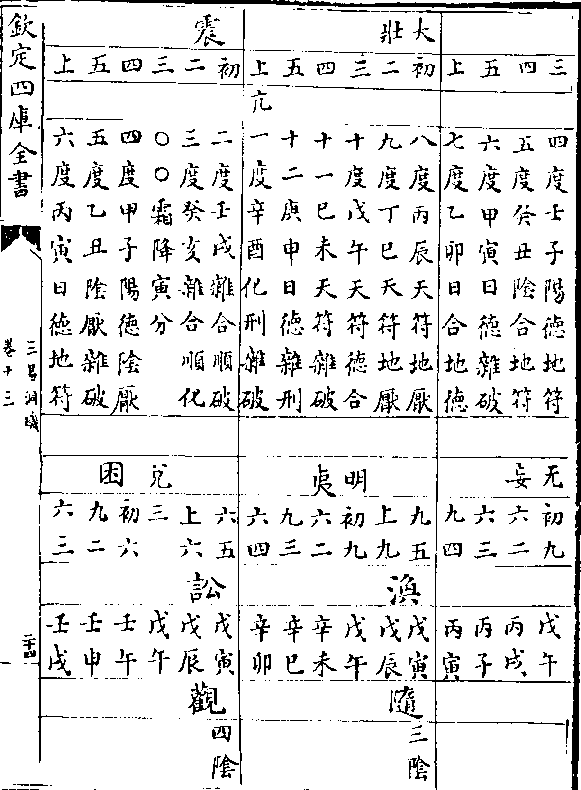 大壯
震
三 四 五 上 初 二 三 四 五 上 初 二 三 四 五 上
亢
四度壬子陽德地符
五度癸丑陰合地符
六度甲寅日德雜破
七度乙卯日合地德
八度丙辰天符地厭
九度丁巳天符地厭
十度戊午天符德合
十一己未天符雜破
十二庚申日德雜刑
一度辛酉化刑雜破
二度壬戌雜合順破
三度癸亥雜合順化
〇〇霜降寅分
四度甲子陽德陰厭
五度乙丑陰厭雜破
六度丙寅日德地符
无妄
明夷
兌
困
初九 六二 六三 九四 九五 上九 初九 六二 九三 六四 六五 上六 三 初六 九二 六三
渙
訟
戊午 丙戌 丙子 丙寅 戊寅 戊辰 戊午 辛未 辛巳 辛卯 戊寅 戊辰 戊午 壬午 壬申 壬戌
隨 三陰
觀 四陰
欽定四庫全書
三易洞璣
卷十三
二十四